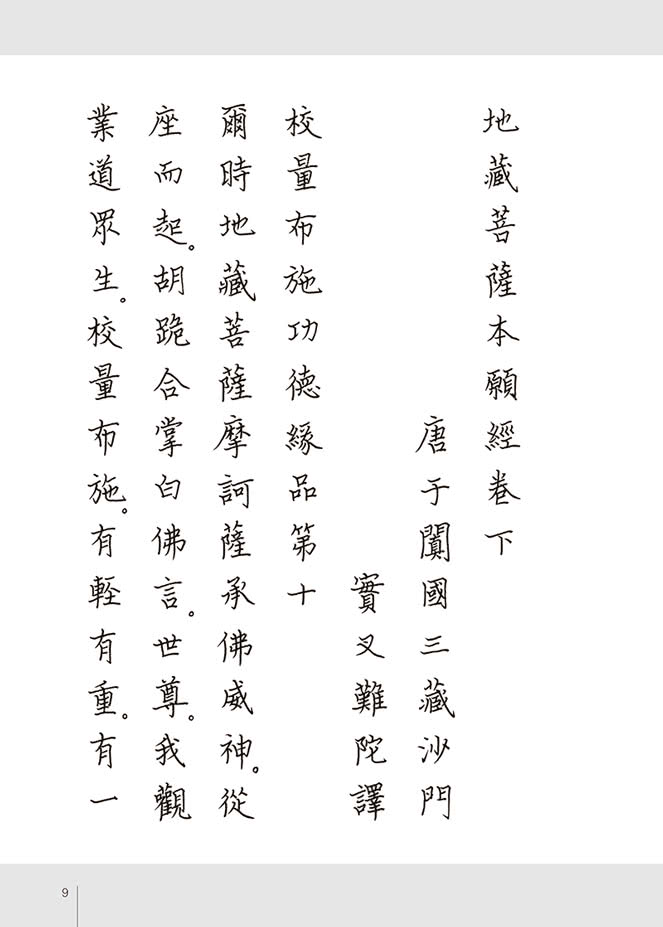 地藏菩薩本願經卷下
唐于闐國三藏沙門
實叉難陀譯
校量布施功德緣品第十
爾時地藏菩薩摩訶薩承佛威神。從
座而起。胡跪合掌白佛言。世尊。我觀
業道眾生。校量布施。有輕有重。有一
9